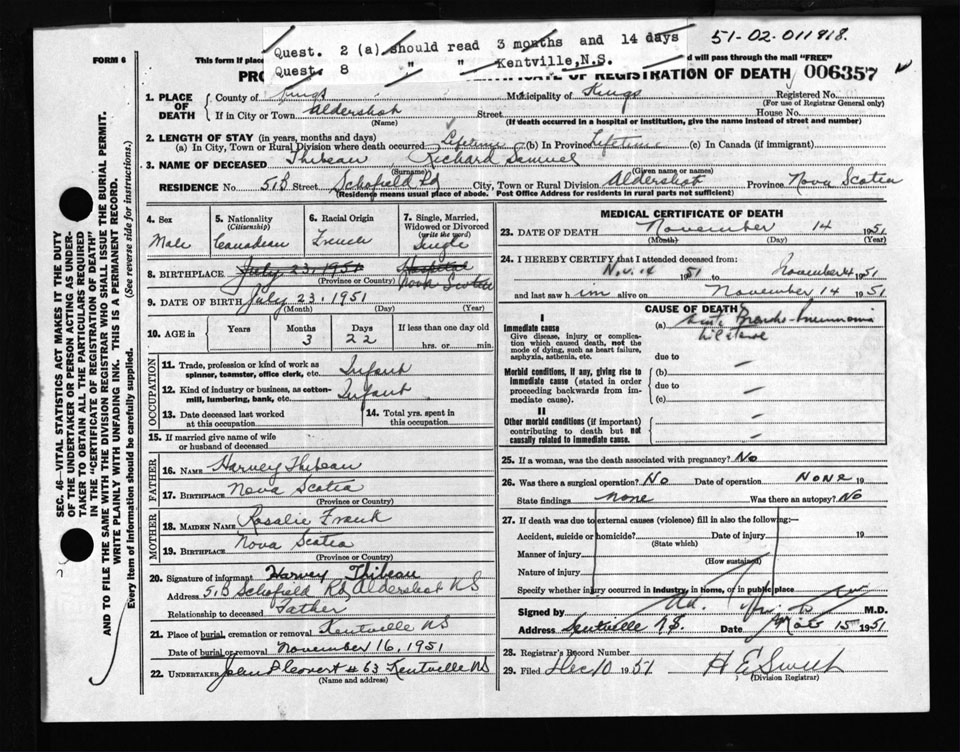 51-02-011818.
Quest. 2 (a) should read 3 months and 14 days
Quest. 8 " " Kentville, N.S.
FORM 6
This form if place
d will pass through the mail "FREE"
PRO
CERTIFICATE OF REGISTRATION OF DEATH 006357
1. PLACE OF DEATH
County of Kings Municipality of Kings Registered No.
(For use of Registrar General only)
If in City or Town Aldershot Street House No.
(Name) (If death occurred in a hospital or institution, give the name instead of street and number)
2. LENGTH OF STAY (in years, months and days)
(a) In City, Town or Rural Division where death occurred Lifetime (b) In Province Lifetime (c) In Canada (if immigrant)
3. NAME OF DECEASED Thibeau Richard Samuel
(Surname) (Given name or names)
RESIDENCE No. 51B Street Schofield Rd City, Town or Rural Division Aldershot Province Nova Scotia
(Residence means usual place of abode. Post Office Address for residents in rural parts not sufficient)
4. Sex
Male
5. Nationality (Citizenship)
Canadian
6. Racial Origin
French
7. Single, Married, Widowed or Divorced (write the word)
Single
8. BIRTHPLACE July 23, 1951 Hospital
Nova Scotia
(Province or Country)
9. DATE OF BIRTH July 23, 1951
(Month) (Day) (Year)
10. AGE in Years Months Days If less than one day old
3 22 hrs. or min.
OCCUPATION
11. Trade, profession or kind of work as spinner, teamster, office clerk, etc. Infant
12. Kind of industry or business, as cotton-mill, lumbering, bank, etc. Infant
13. Date deceased last worked at this occupation
14. Total yrs. spent in this occupation
15. If married give name of wife or husband of deceased
FATHER
16. NAME Harvey Thibeau
17. BIRTHPLACE Nova Scotia
(Province or Country)
MOTHER
18. MAIDEN NAME Rosalie Frank
19. BIRTHPLACE Nova Scotia
(Province or Country)
20. Signature of informant Harvey Thibeau
Address 51B Schofield Rd, Aldershot NS
Relationship to deceased Father
21. Place of burial, cremation or removal Kentville NS
Date of burial or removal November 16, 1951
22. UNDERTAKER # 63 Kentville NS
(Name and address)
MEDICAL CERTIFICATE OF DEATH
23. DATE OF DEATH November 14 1951
(Month) (Day) (Year)
24. I HEREBY CERTIFY that I attended deceased from:
Nov. 14 1951 to November 14 1951
and last saw h im alive on November 14 1951
CAUSE OF DEATH
I
Immediate cause
Give disease, injury or complication which caused death, not the mode of dying, such as heart failure, asphyxia, asthenia, etc.
(a) Broncho-pneumonia
due to
Morbid conditions, if any, giving rise to immediate cause (stated in order proceeding backwards from immediate cause).
(b)
due to
(c)
II
Other morbid conditions (if important) contributing to death but not causally related to immediate cause.
25. If a woman, was the death associated with pregnancy? No
26. Was there a surgical operation? No Date of operation NONE 19
State findings none Was there an autopsy? No
27. If death was due to external causes (violence) fill in also the following:—
Accident, suicide or homicide? Date of injury 19
(State which)
Manner of injury
(How sustained)
Nature of injury
Specify whether injury occurred in industry, in home, or in public place
Signed by M.D.
Address Kentville N.S. Date 15 1951
28. Registrar's Record Number
29. Filed Dec 10 1951 H E Swee
(Division Registrar)
SEC. 46—VITAL STATISTICS ACT MAKES IT THE DUTY
OF THE UNDERTAKER OR PERSON ACTING AS UNDER-
TAKER TO OBTAIN ALL THE PARTICULARS REQUIRED
IN THE "CERTIFICATE OF REGISTRATION OF DEATH"
AND TO FILE THE SAME WITH THE DIVISION REGISTRAR WHO SHALL ISSUE THE BURIAL PERMIT.
WRITE PLAINLY WITH UNFADING INK. THIS IS A PERMANENT RECORD.
Every item of information should be carefully supplied. (See reverse side for instructions.)